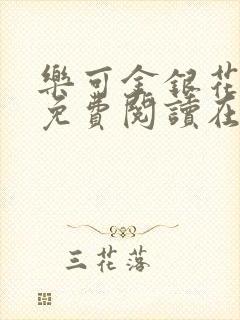 樂可金銀花
免費閱讀在
三花落